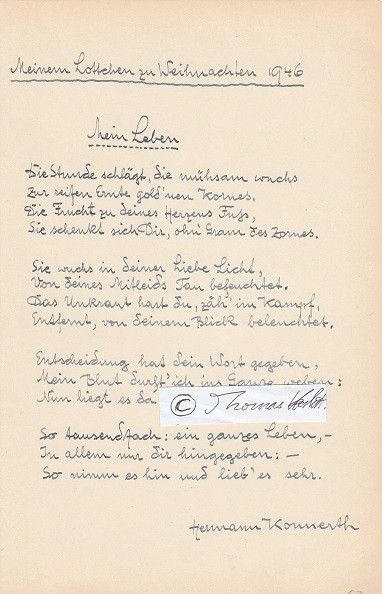 Meinem Lottchen zu Weihnachten 1946
Mein Leben
Die Stunde schlägt, die mühsam wuchs
Zur reifen Ernte gold'nen Kornes.
Die Frucht zu deines Herzens Fuss,
Sie schenkt sich Dir, ohn' Gram des Zornes.
Sie wuchs in deiner Liebe Licht,
Von deines Mitleids Tau befeuchtet.
Das Unkraut hast du, zäh' im Kampf,
Entfernt, von deinem Blick beleuchtet.
Entscheidung hat dein Wort gegeben,
Mein Blut durft' ich ins Ganze weben:
Nun liegt es da
© Thomas
So tausendfach: ein ganzes Leben,-
In allem nur dir hingegeben: –
So nimm es hin und lieb' es sehr.
Hermann Konnerth